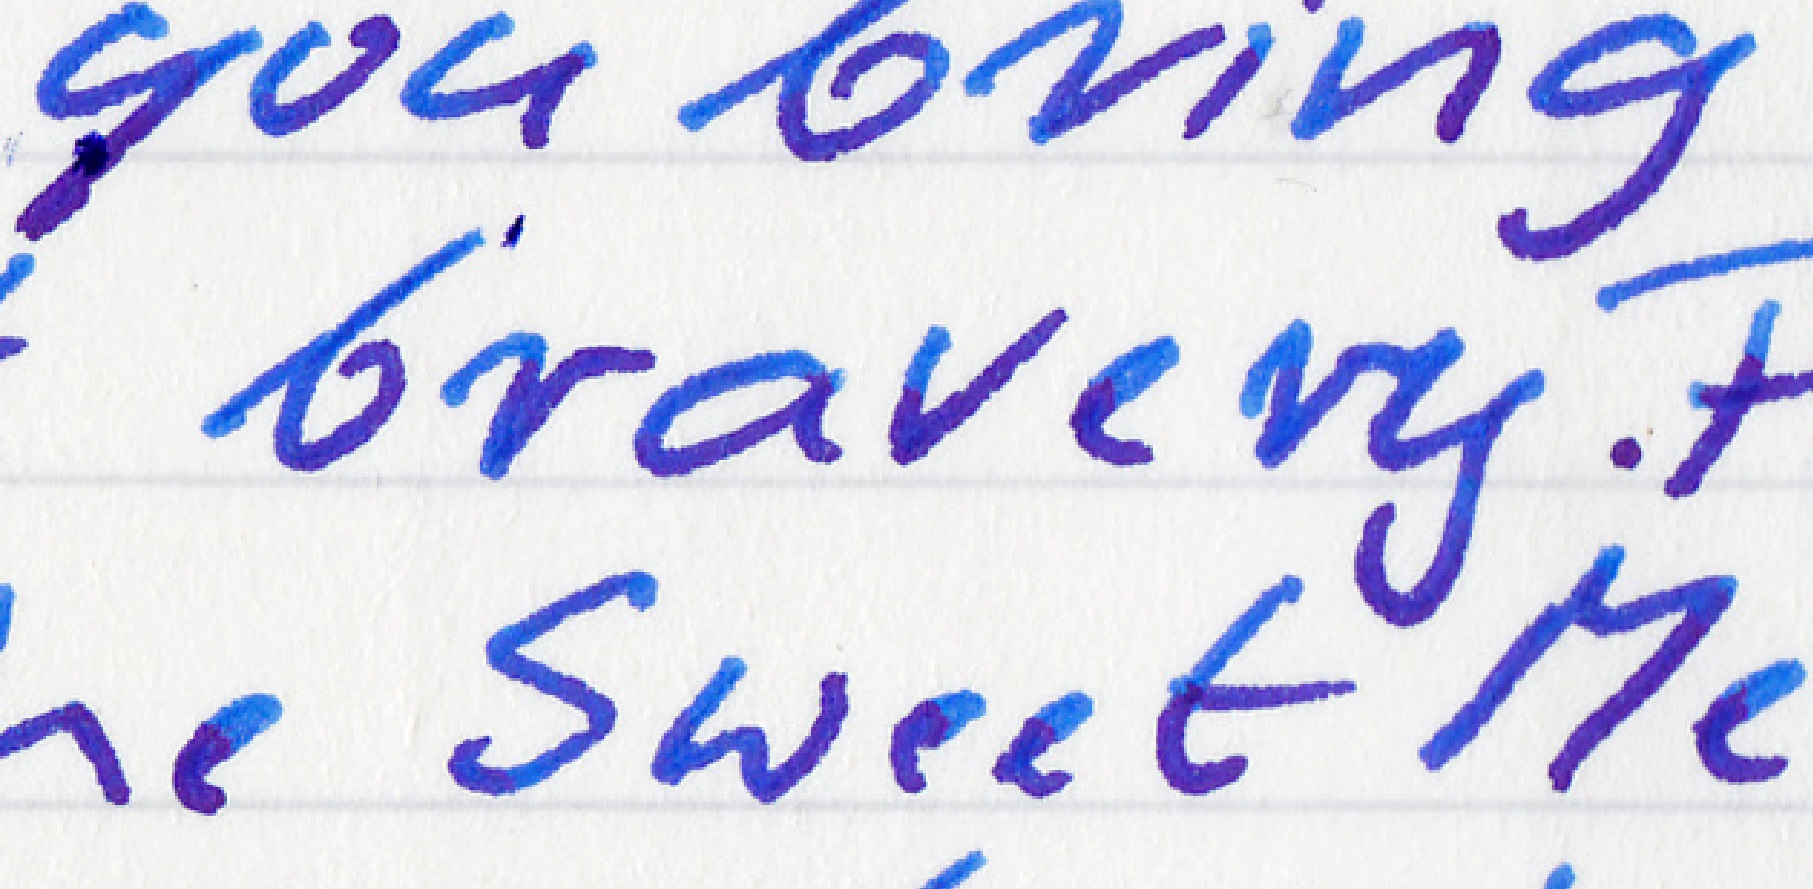 you bring
bravery.
Sweet